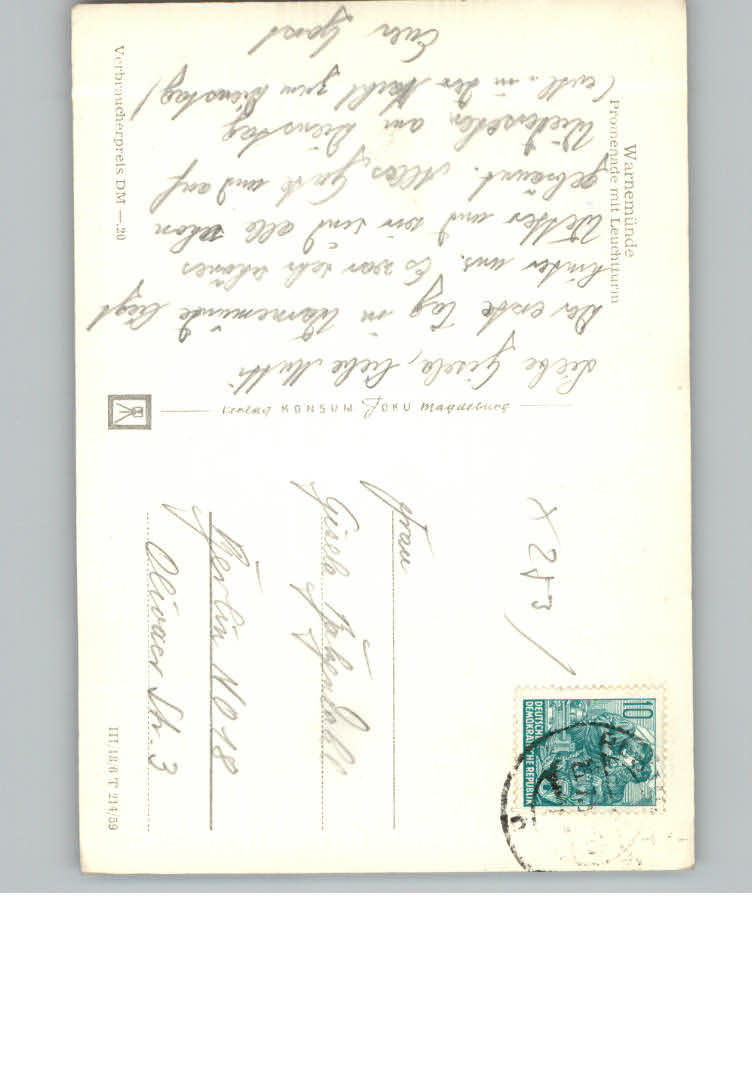 Warnemünde
Promenade mit Leuchtturm
Liebe Gisela, liebe Mutti.
Der erste Tag in Warnemünde liegt
hinter uns. Es war sehr schönes
Wetter und wir sind alle schon
gebräunt. Alles Gute und auf
Wiedersehen am Dienstag
(evtl. in der Nacht zum Dienstag)
Euer Horst
Verbraucherpreis DM —.20
Verlag KONSUM FOKU Magdeburg
X 253
10
DEUTSCHE
DEMOKRATISCHE REPUBLIK
Frau
Gisela
Berlin NO 18
Olivaer Str. 3
III/18/6 T 214/59